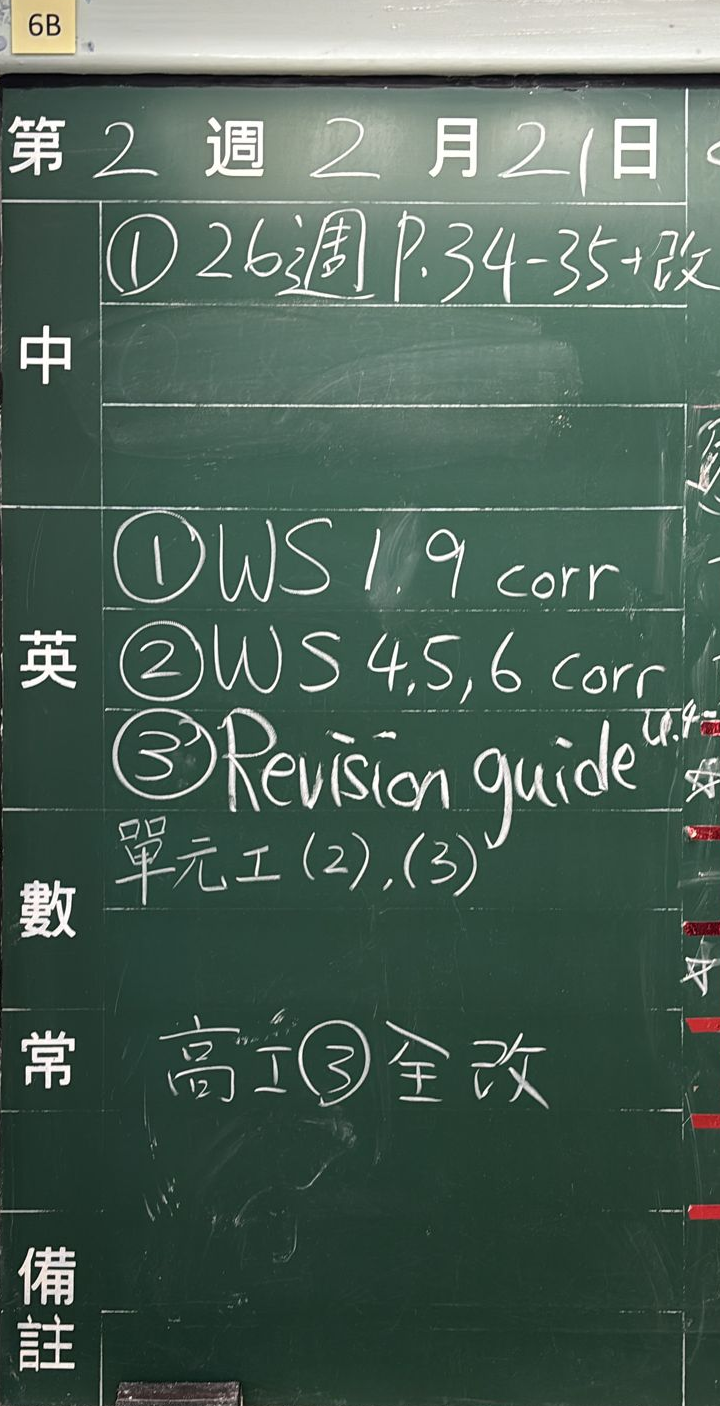 6B
第 2 週 2 月 21 日
中
① 26週 P.34-35+改
英
① WS 1.9 corr
② WS 4,5,6 corr
③ Revision guide
數
單元工(2),(3)
常
高工③全改
備註